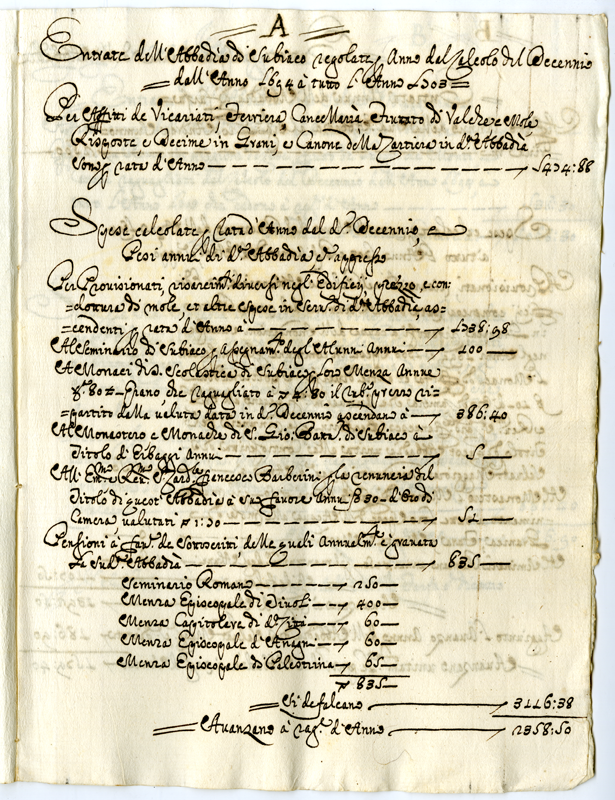 A
Entrate dell'Abbadia di Subiaco regolate p Anno dal Calcolo del Decennio
dall'Anno 1694 à tutto l'Anno 1703
Per Affitti de Vicariati, Ferriera, Cancellaria, fruttato di Valche e Mole
Risposte e Decime in Grani, e Canone della Cartiera in d.ª Abbadia
Sono p rata d'Anno — 5474:88
Spese calcolate p Rata d'Anno dal d.º Decennio, e
Pesi annui di d.ª Abbadia
Per Provisionati, risarcim.ti diversi negl'Edifitij, prezzo, e con=
=dottura di mole, et altre spese in Serv.º di d.ª Abbadia, as=
=cendenti p rata d'Anno à — 1738:98
Al Seminario di Subiaco p Assegnam.to degl'Alunni Annui — 100 —
A Monaci di S. Scolastica di Subiaco p loro Menza Annue
80½ grano, che raguagliato à 4:80 il rub.º prezzo ri=
=partito dalla valuta data in d.º Decennio ascendano à — 386:40
Al Monastero e Monache di S. Gio: Batta. di Subiaco à
Titolo di Annui — 5 —
All'Em.mo e Rev.mo S. Card. Francesco Barberini p la renuncia del
Titolo di quest'Abbadia à Suo favore Annui 30 - d'oro di
Camera valutati 1:70 — 51 —
Pensioni à fav.e de Sottoscritti delle quali Annualm.te è gravata
La Sud.ª Abbadia — 835 —
Seminario Romano — 250 —
Menza Episcopale di Tivoli — 400 —
Menza Capitolare di d.ª Città — 60 —
Menza Episcopale d'Anagni — 60 —
Menza Episcopale di Palestrina — 65 —
835 —
Si defalcano — 3116:38
Avanzano à rag.e d'Anno — 2358:50